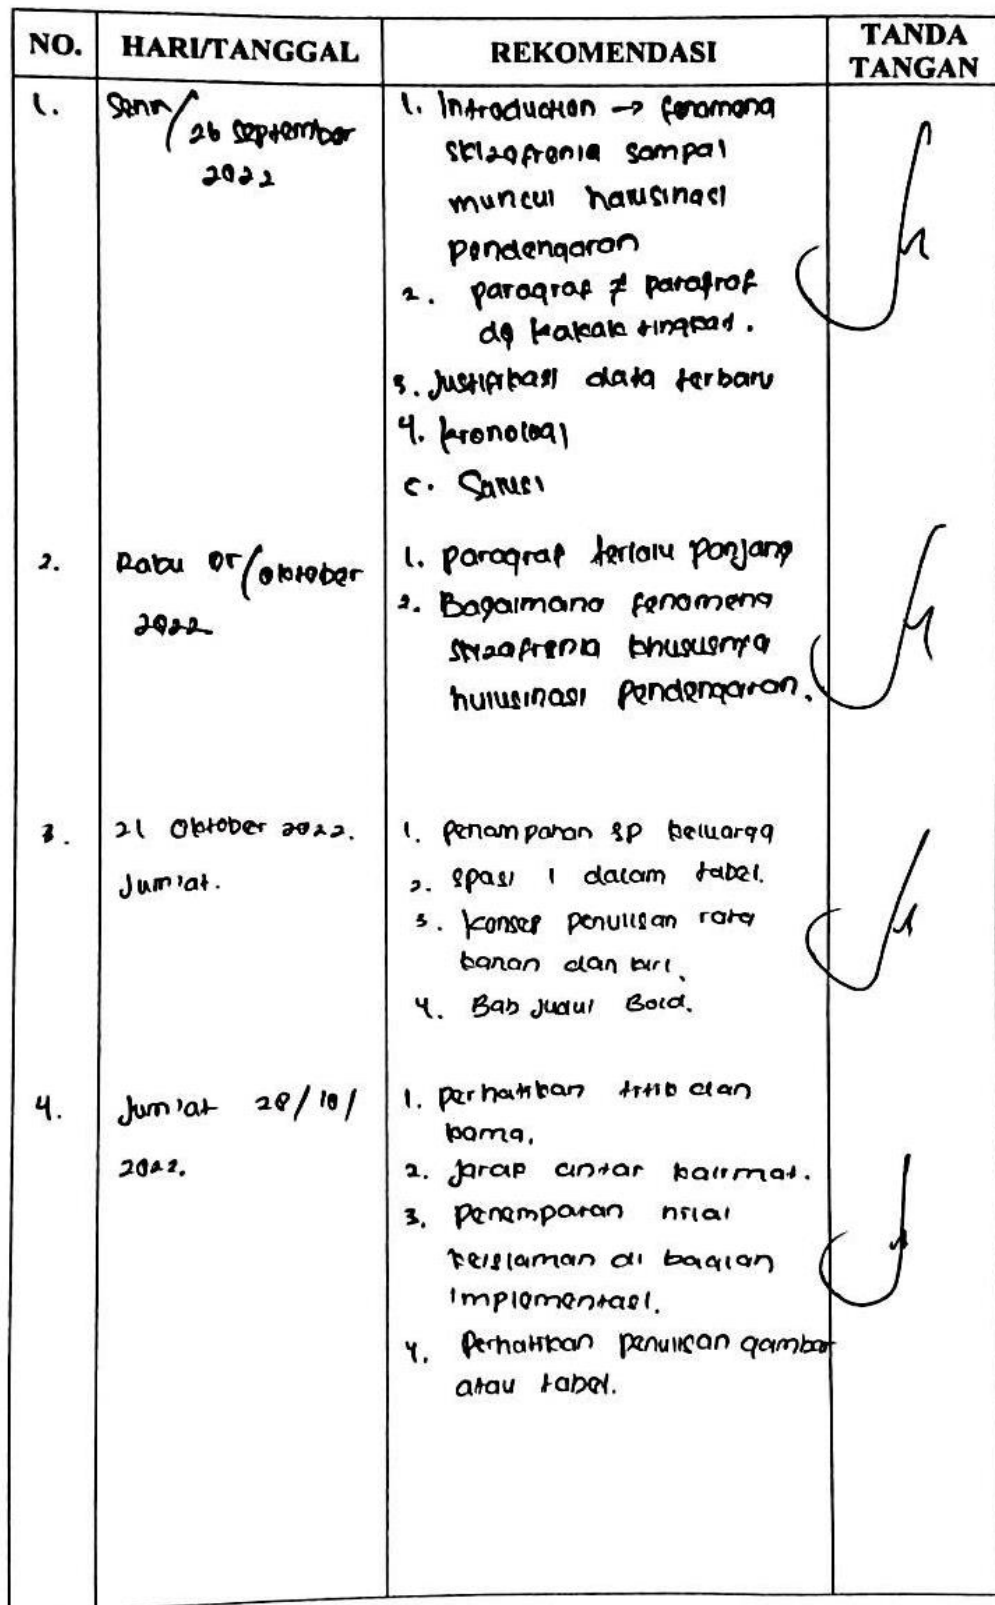 NO. HARI/TANGGAL REKOMENDASI TANDA TANGAN
1. Senin/26 September 2022
1. Introduction → fenomena
skizofrenia sampai
muncul halusinasi
pendengaran
2. paragraf ≠ parafraf
dg kakak tingkat.
3. Justifikasi data terbaru
4. kronologi
5. Solusi
2. Rabu 05/oktober
2022
1. paragraf terlalu panjang
2. Bagaimana fenomena
skizofrenia khususnya
hulusinasi pendengaran.
3. 21 Oktober 2022.
Jum'at.
1. penampahan SP keluarga
2. spasi 1 dalam tabel.
3. Konsep penulisan rata
kanan dan kiri.
4. Bab Judul Bold.
4. Jum'at 28/10/
2022.
1. perhatikan titik dan
koma.
2. Jarak antar kalimat.
3. Penempatan nilai
keislaman di bagian
implementasi.
4. Perhatikan penulisan gambar
atau tabel.